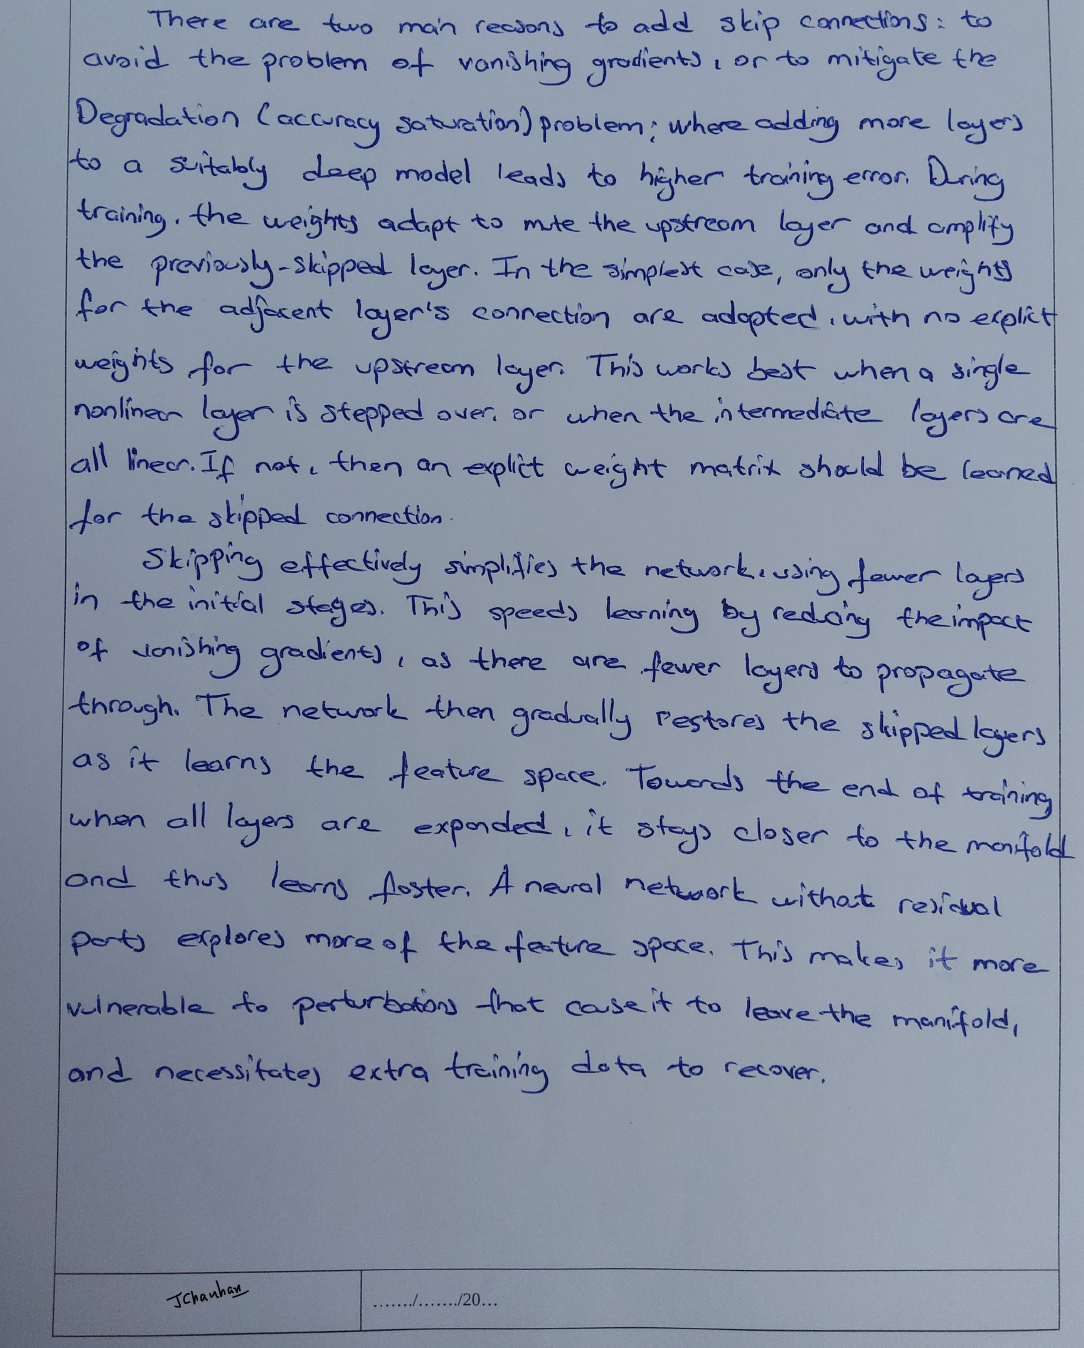 There are two main reasons to add skip connections: to
avoid the problem of vanishing gradients, or to mitigate the
Degradation (accuracy saturation) problem; where adding more layers
to a suitably deep model leads to higher training error. During
training, the weights adapt to mute the upstream layer and amplify
the previously-skipped layer. In the simplest case, only the weights
for the adjacent layer's connection are adapted, with no explict
weights for the upstream layer. This works best when a single
nonlinear layer is stepped over, or when the intermediate layers are
all linear. If not, then an explict weight matrix should be learned
for the skipped connection.
Skipping effectively simplifies the network, using fewer layers
in the initial stages. This speeds learning by reducing the impact
of vanishing gradients, as there are fewer layers to propagate
through. The network then gradually restores the skipped layers
as it learns the feature space. Towards the end of training
when all layers are expanded, it stays closer to the manifold
and thus learns faster. A neural network without residual
parts explores more of the feature space. This makes it more
vulnerable to perturbations that cause it to leave the manifold,
and necessitates extra training data to recover.
JChauhan
......./......./20...